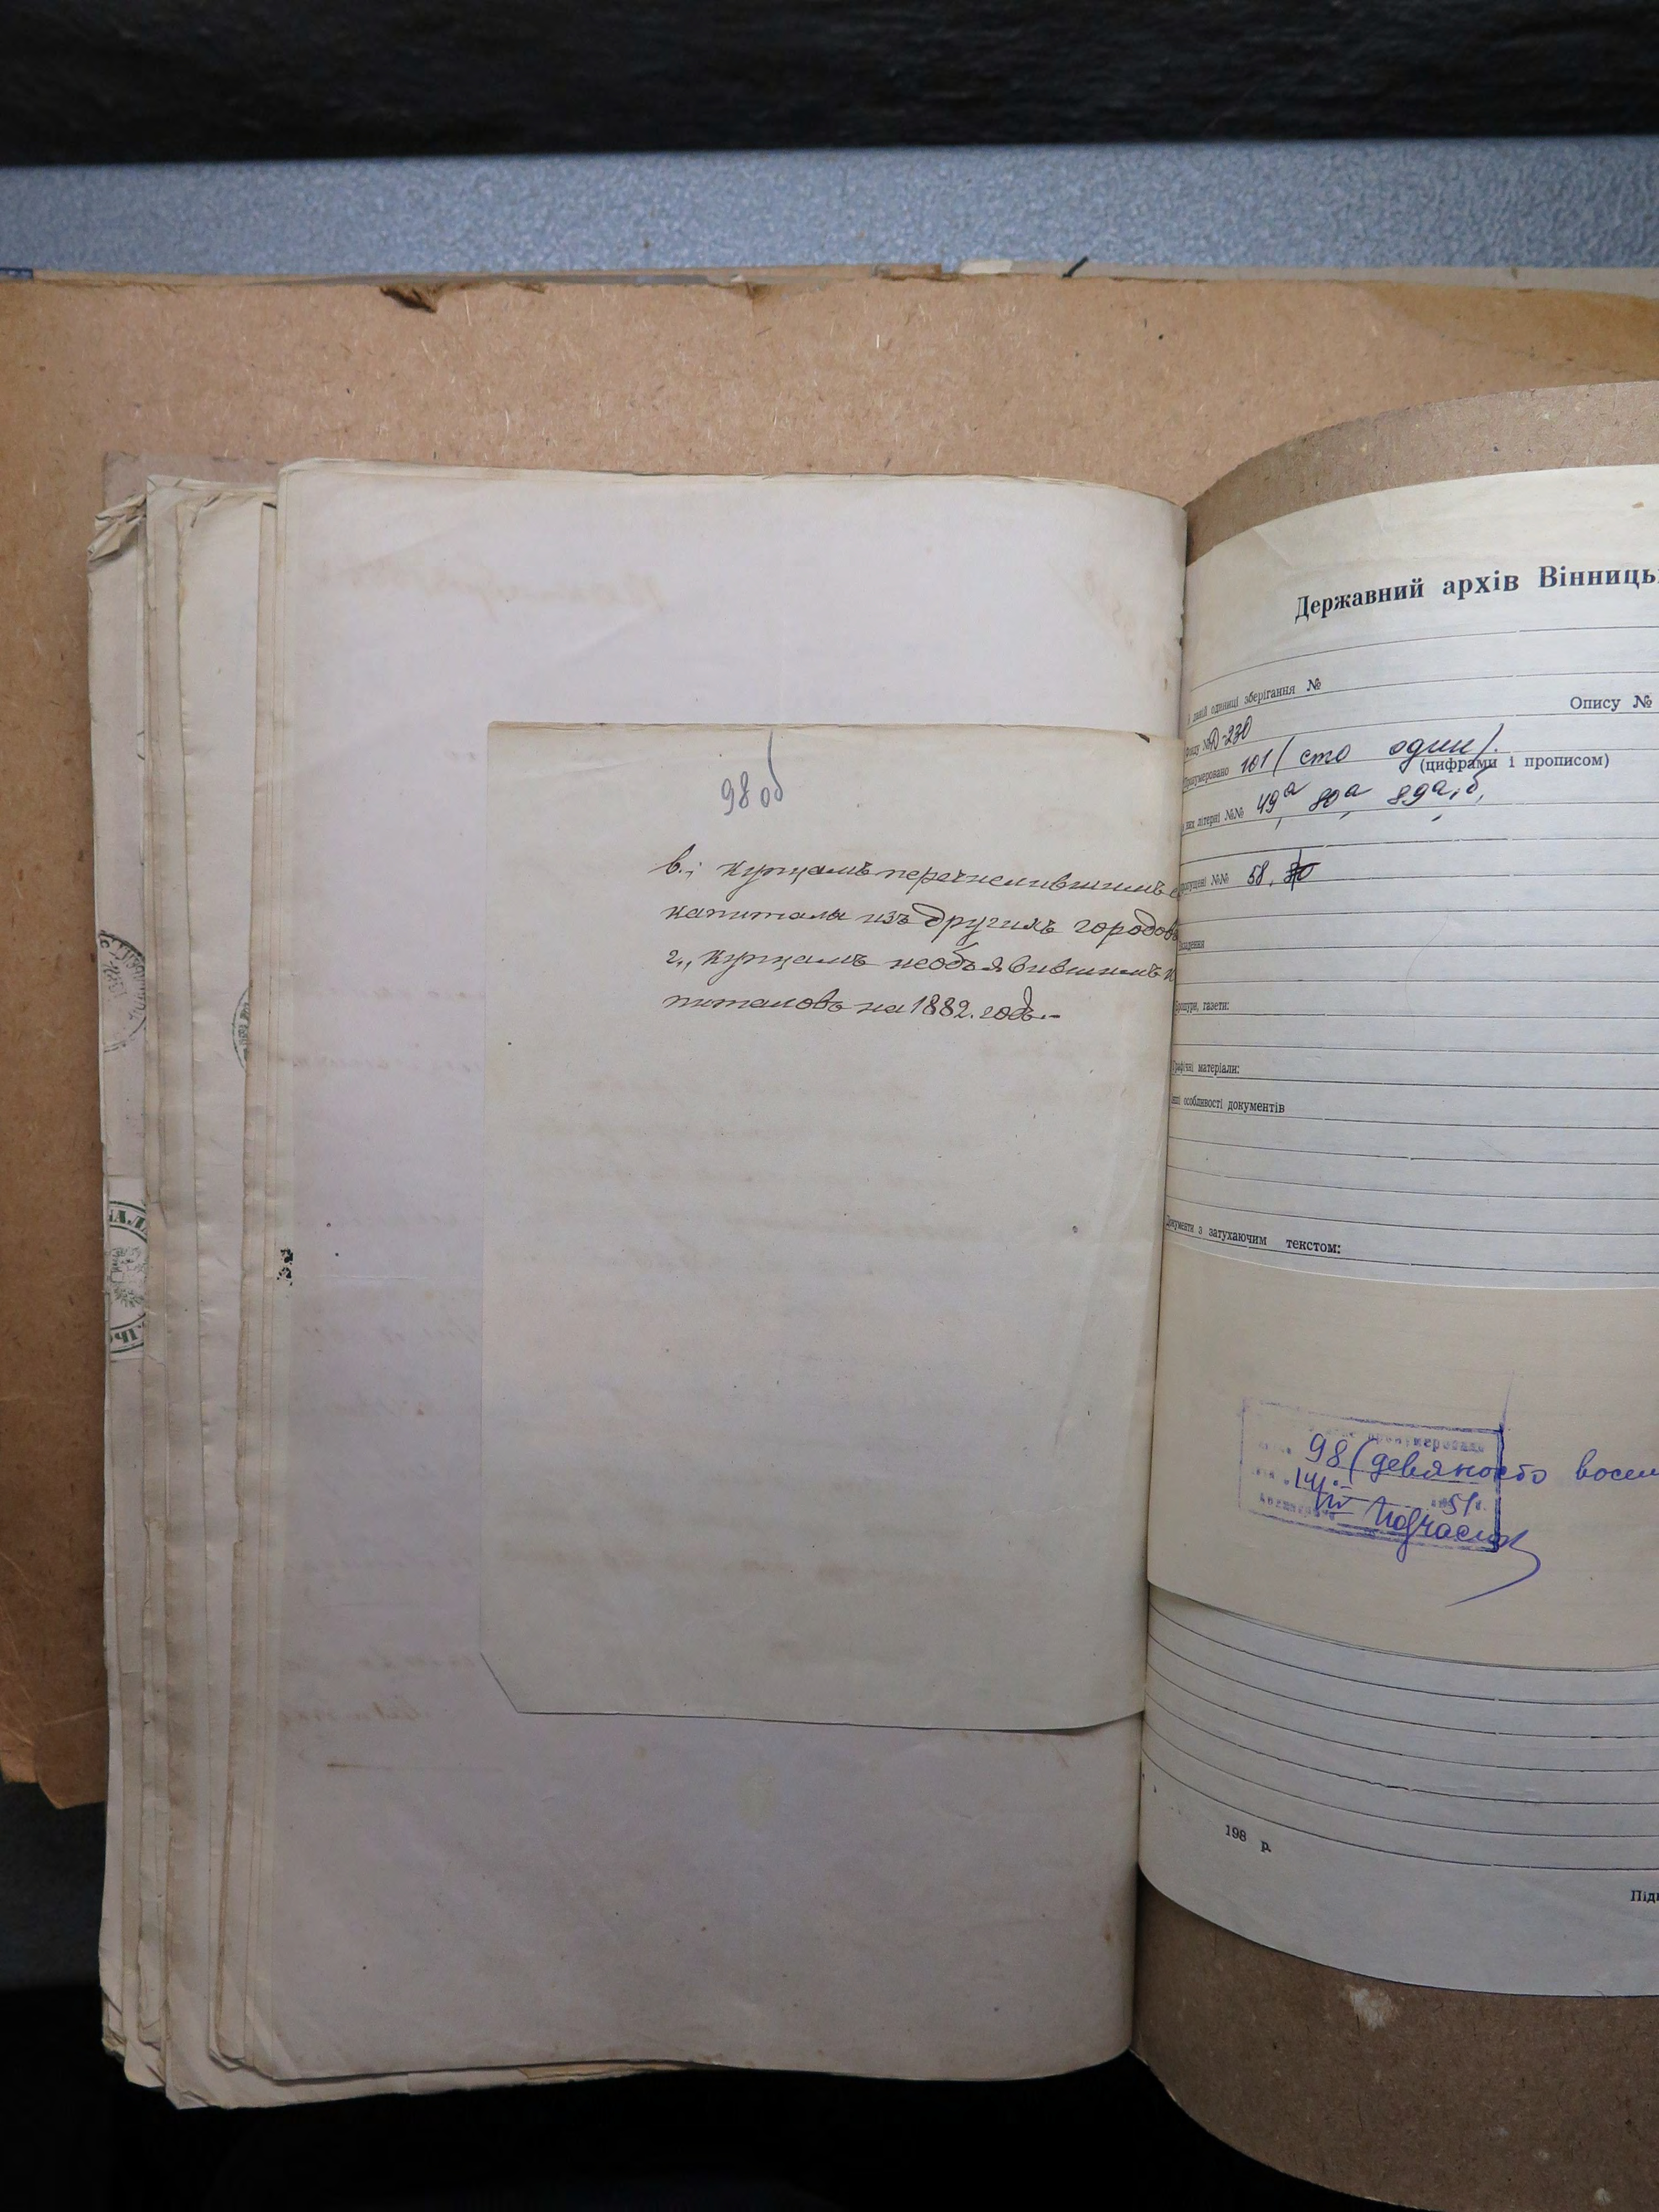 98 об
в.; купцамъ перечислившимъ
капиталы изъ другихъ городовъ
г., купцамъ необъявившимъ к
питаловъ на 1882. годъ.-
Державний архів Вінниць
даній одиниці зберігання №
Опису №
фонду № Д-230
Пронумеровано 101 (сто один).
(цифрами і прописом)
них літерні №№ 49а, 80а, 89а,б,
пропущені №№ 58,
Вкладення
Брошури, газети:
Графічні матеріали:
особливості документів
Документи з затухаючим текстом:
98 (девяносто восем
14. IV 51 г.
198 р.
Підп